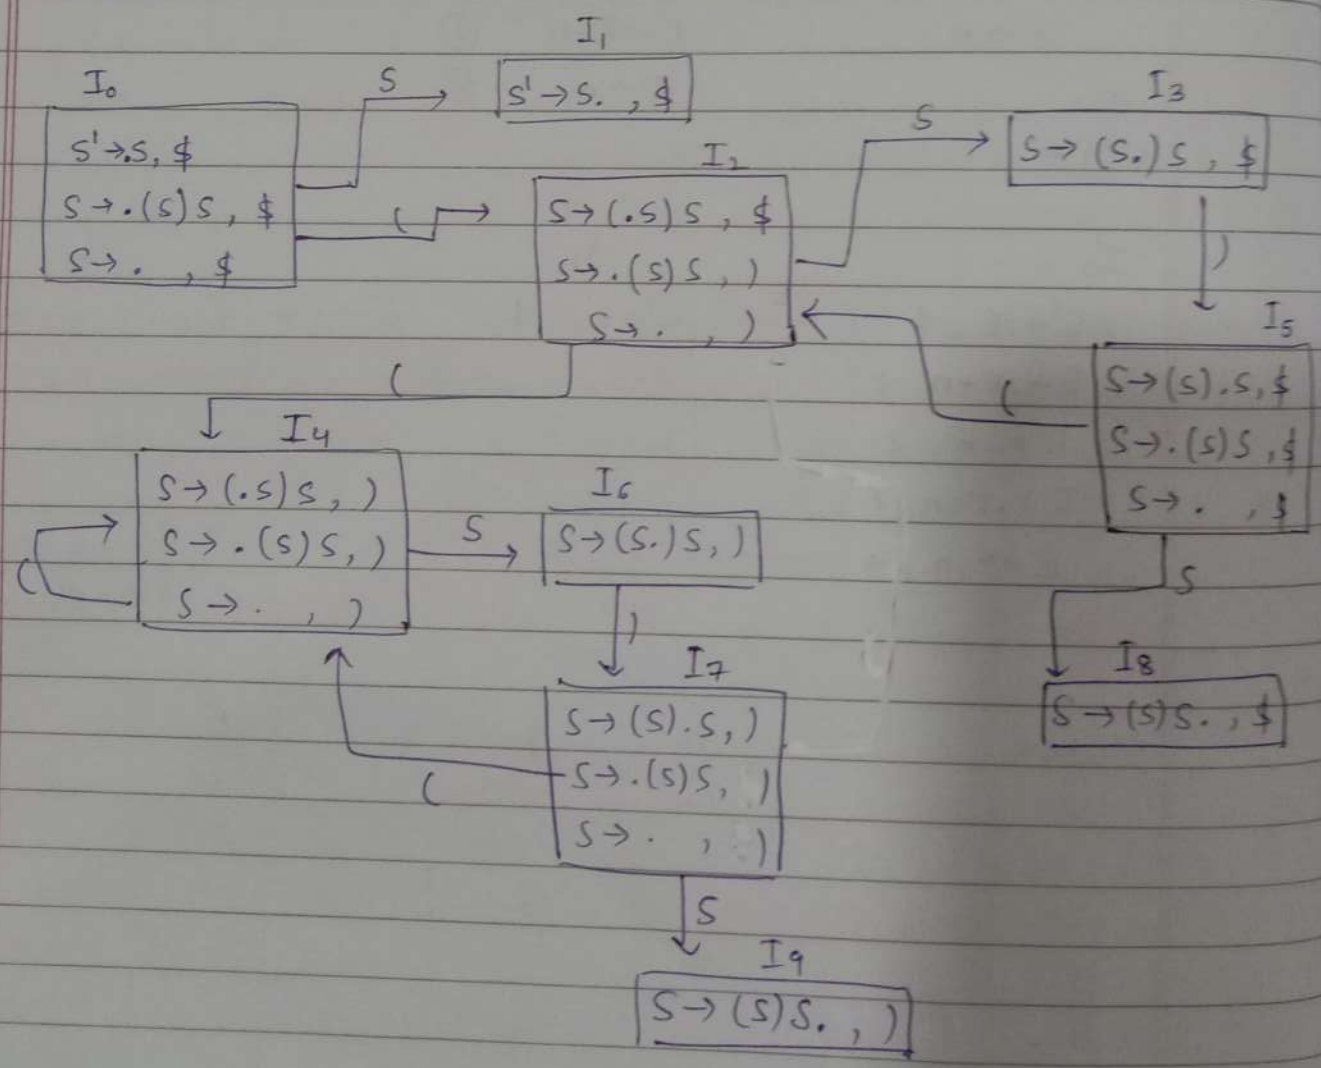 I₀
S' → .S, $
S → .(S)S, $
S → . , $
S
(
I₁
S' → S. , $
I₂
S → (.S)S, $
S → .(S)S, )
S → . , )
S
I₃
S → (S.)S, $
)
I₅
S → (S).S, $
S → .(S)S, $
S → . , $
(
S
I₈
S → (S)S. , $
(
I₄
S → (.S)S, )
S → .(S)S, )
S → . , )
(
S
I₆
S → (S.)S, )
)
I₇
S → (S).S, )
S → .(S)S, )
S → . , )
(
S
I₉
S → (S)S. , )